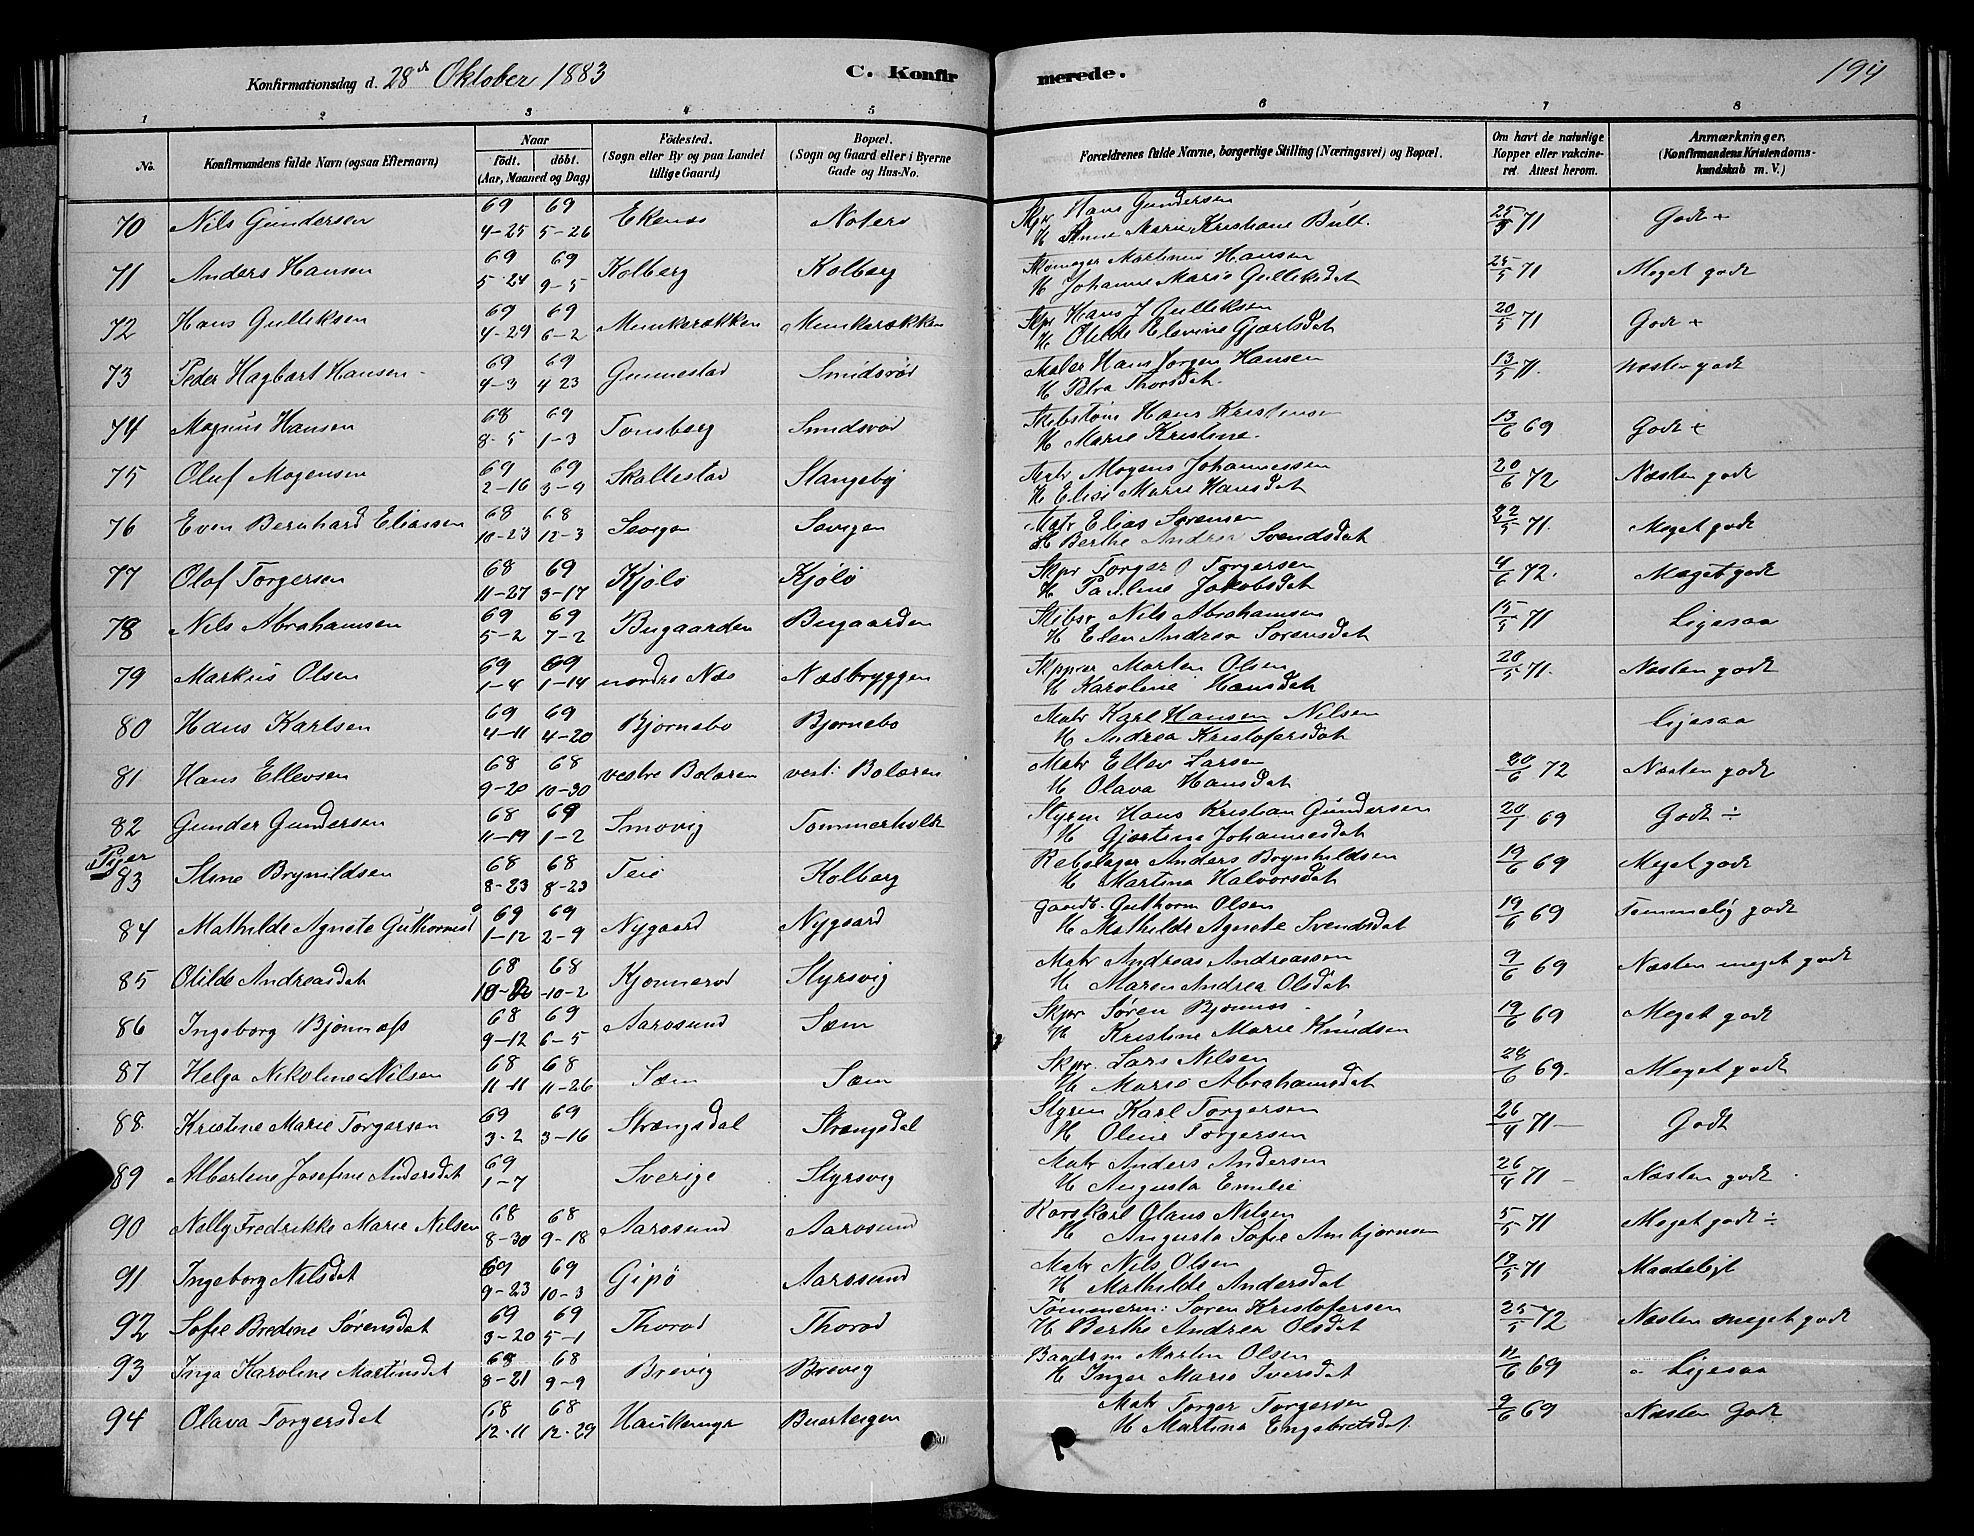 Konfirmationsdag d. 28de Oktober 1883 C. Konfirmerede. 194
1 2 3 4 5 6 7 8
No. Konfirmandens fulde Navn (ogsaa Efternavn) Naar født. døbt. (Aar, Maaned og Dag) Fødested. (Sogn eller By og paa Landet tillige Gaard) Bopæl. (Sogn og Gaard eller i Byerne Gade og Hus-No. Forældrenes fulde Navne, borgerlige Stilling (Næringsvei) og Bopæl. Om havt de naturlige Kopper eller vakcineret. Attest herom. Anmærkninger, (Konfirmandens Kristendomskundskab m. V.)
70 Nils Gundersen 69 4-25 69 5-26 Ekenes Noterø Skpr Hans Gundersen H Anne Marie Kristiane Bull. 25/5 71 Godt +
71 Anders Hansen 69 5-24 69 9-5 Kolberg Kolberg Skomager Martinus Hansen H Johanne Marie Gulliksdat 25/5 71 Meget godt
72 Hans Gulliksen 69 4-29 69 6-2 Munkerækken Munkerækken Skpr Hans J Gulliksen H Otilde Elevine Gjærtsdat 20/5 71 Godt +
73 Peder Hagbart Hansen 69 4-3 69 4 23 Gunnestad Smidsrød Maler Hans Jørgen Hansen H Petra Thorsdat. 13/5 71. Næsten godt
74 Magnus Hansen 68 8-5 69 1-3 Tønsberg Smidsrød Skibstøm Hans Kristensen H Marie Kristine. 13/6 69 Godt ÷
75 Oluf Mogensen 69 2-16 69 3-9 Skallestad Stangeby Matr Mogens Johannessen H Elise Marie Hansdat 20/6 72 Næsten godt
76 Even Bernhard Eliassen 68 10-23 68 12-3 Søvigen Søvigen Matr Elias Sørensen H Berthe Andrea Svendsdat 22/5 71. Meget godt
77 Olaf Torgersen 68 11-27 69 3-17 Kjølø Kjølø Skpr Torger Torgersen H Pauline Jakobsdat 4/6 72. Meget godt
78 Nils Abrahamsen 69 5-2 69 7-2 Bugaarden Bugaarden Skibsr Nils Abrahamsen H Elen Andrea Sørensdat 15/5 71 Ligesaa
79 Markus Olsen 69 1-4 69 1-14 nordre Næs Næsbryggen Skpper Morten Olsen H Karoline Hansdat 20/5 71. Næsten godt
80 Hans Karlsen 69 4-11 69 4-20 Bjørnebo Bjørnebo Matr Karl Hansen Nilsen H Andrea Kristofersdat ligesaa
81 Hans Ellevsen 68 9-20 68 10-30 vestre Bolæren vest: Bolæren Matr Ellev Larsen H Olava Hansdat 20/6 72 Næsten godt
82 Gunder Gundersen 68 11-19 69 1-2 Smovig Tømmerholt Styrm Hans Kristian Gundersen H Gjørtine Johannesdat 20/1 69 Godt ÷
Piger
83 Stine Brynildsen 68 8-23 68 8-23 Teie Kolberg Rebslager Anders Brynhildsen H Martina Halvorsdat 19/6 69 Meget godt
84 Mathilde Agnete Guthormsd 69 1-12 69 2-9 Nygaard Nygaard Gaardb. Guthorm Olsen H Mathilde Agnete Svendsdat 19/6 69 Temmelig godt
85 Otilde Andreasdat 68 68 10-2 Kjønnerød Styrsvig Matr Andreas Andreassen H Maren Andrea Olsdat 9/6 69 Næsten meget godt
86 Ingeborg Bjønnæss 68 9-12 69 6-5 Aarøsund Sæm Skpr Søren Bjønnes H Kristine Marie Knudsen 19/6 69 Meget godt
87 Helga Nikoline Nilsen 68 11-11 68 11-26 Sæm Sæm Skpr. Lars Nilsen H Marie Abrahamsdat 28/6 69. Meget godt
88. Kristine Marie Torgersen 69 3-2 69 3-16 Strængsdal Strængsdal Styrm Karl Torgersen H Oline Torgersen 26/4 71 Godt
89 Albertine Josefine Andersdat 69 1-7 Sverige Styrsvig Matr Anders Andersen H Augusta Emilie 26/4 71 Næsten godt
90 Nelly Fredrikke Marie Nilsen 68 8-30 68 9-18 Aarøsund Aarøsund Karl Olaus Nilsen H Augusta Sofie Arnbjørnsen 5/5 71 Meget godt ÷
91 Ingeborg Nilsdat 69 9-23 69 10-3 Gipø Aarøsund Matr Nils Olsen H Mathilde Andersdat 19/5 71 Maadeligt
92 Sofie Bredine Sørensdat 69 3-20 69 5-1 Thorød Thorød Tømmerm: Søren Kristofersen H Berthe Andrea Olsdat 25/5 72 Næsten meget godt
93 Inga Karoline Martinsdat 68 8-21 68 9-9 Brevig Brevig Baadsm Martin Olsen H Inger Marie Iversdat 11/6 69 Ligesaa
94 Olava Torgersdat 68 12-11 68 12-29 Buerstigen Matr Torger Torgersen H Martina Engebretsdat. 9/6 69 Næsten Godt